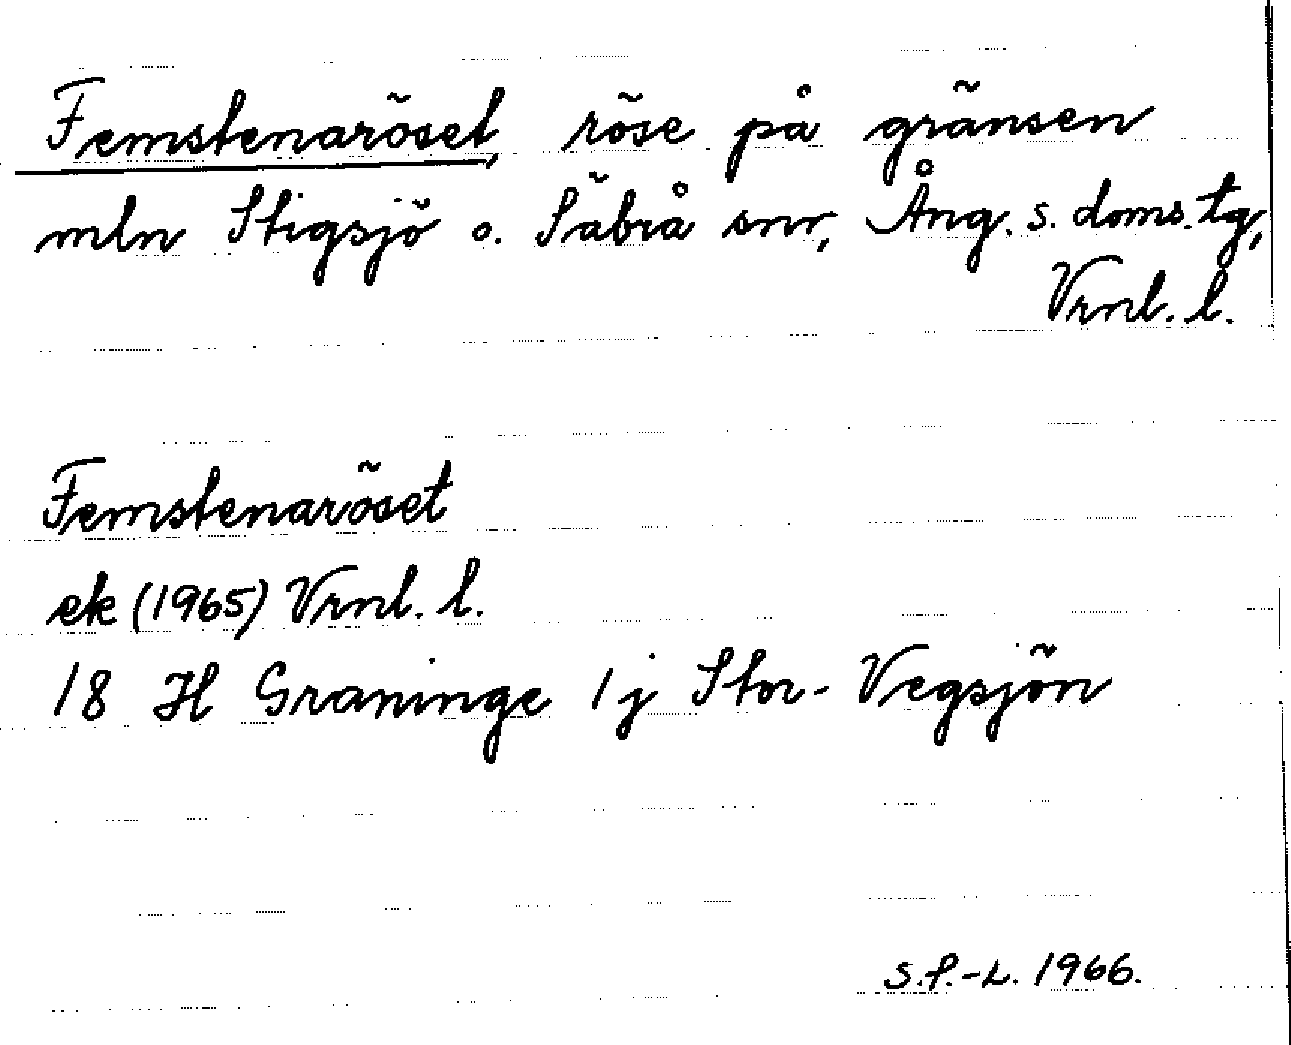 Femstenaröset, röse på gränsen
mln Stigsjö o. Säbrå snr, Ång. s. doms. tg,
Vrnl. l.
Femstenaröset
ek (1965) Vrnl. l.
18 H Graninge 1 j Stor-Vegsjön
S.P.-L. 1966.